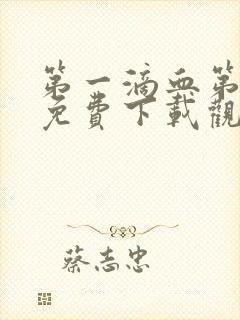 第一滴血第
免費下載觀
蔡志忠